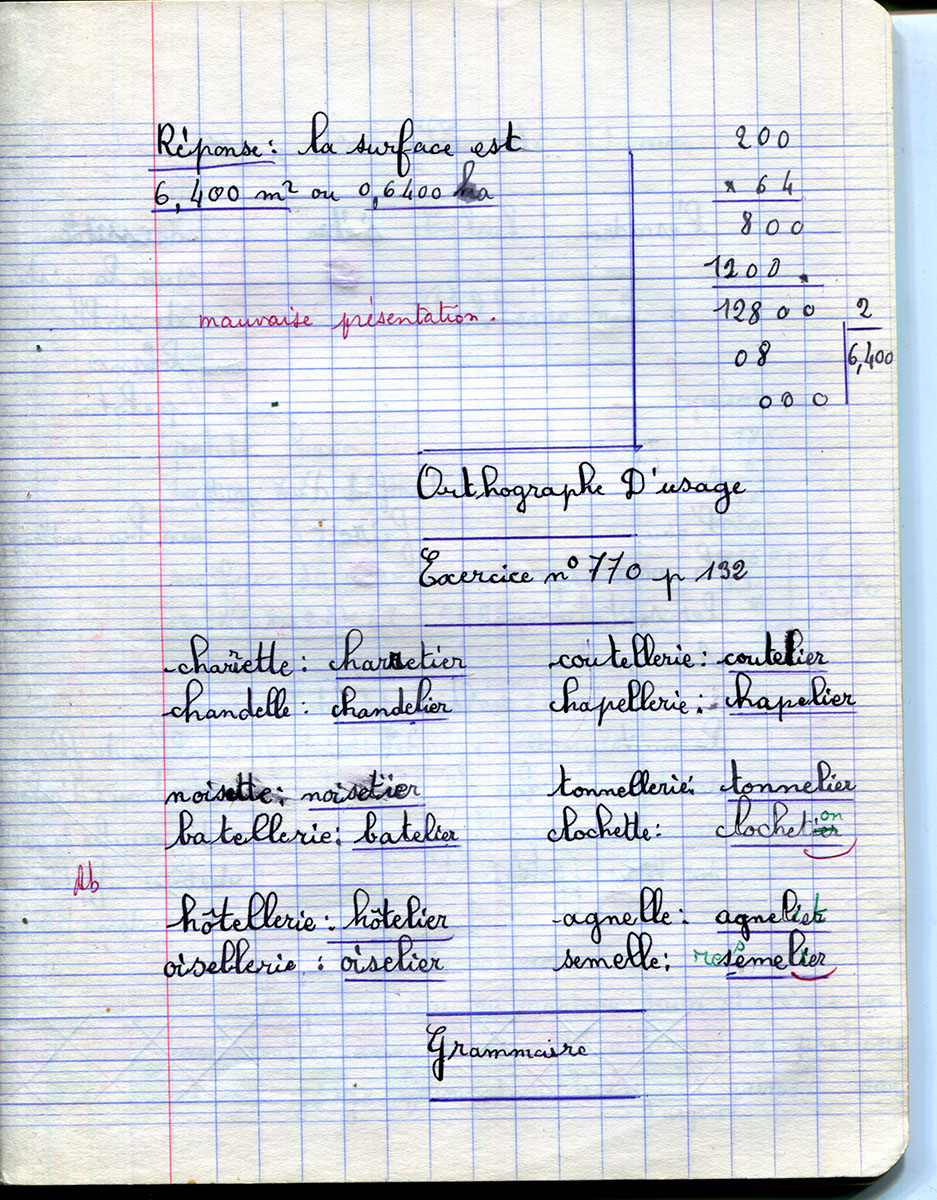 Réponse: la surface est
6,400 m² ou 0,6400 ha
mauvaise présentation.
200
× 64
800
1200.
12800 2
08 6,400
000
Orthographe D'usage
Exercice n° 770 p 132
charrette: charretier
chandelle: chandelier
noisette: noisetier
batellerie: batelier
hôtellerie: hôtelier
oisellerie: oiselier
coutellerie: coutelier
chapellerie: chapelier
tonnellerie: tonnelier
clochette: clochetier on
agnelle: agnelet
semelle: ressemelier
Ab
Grammaire